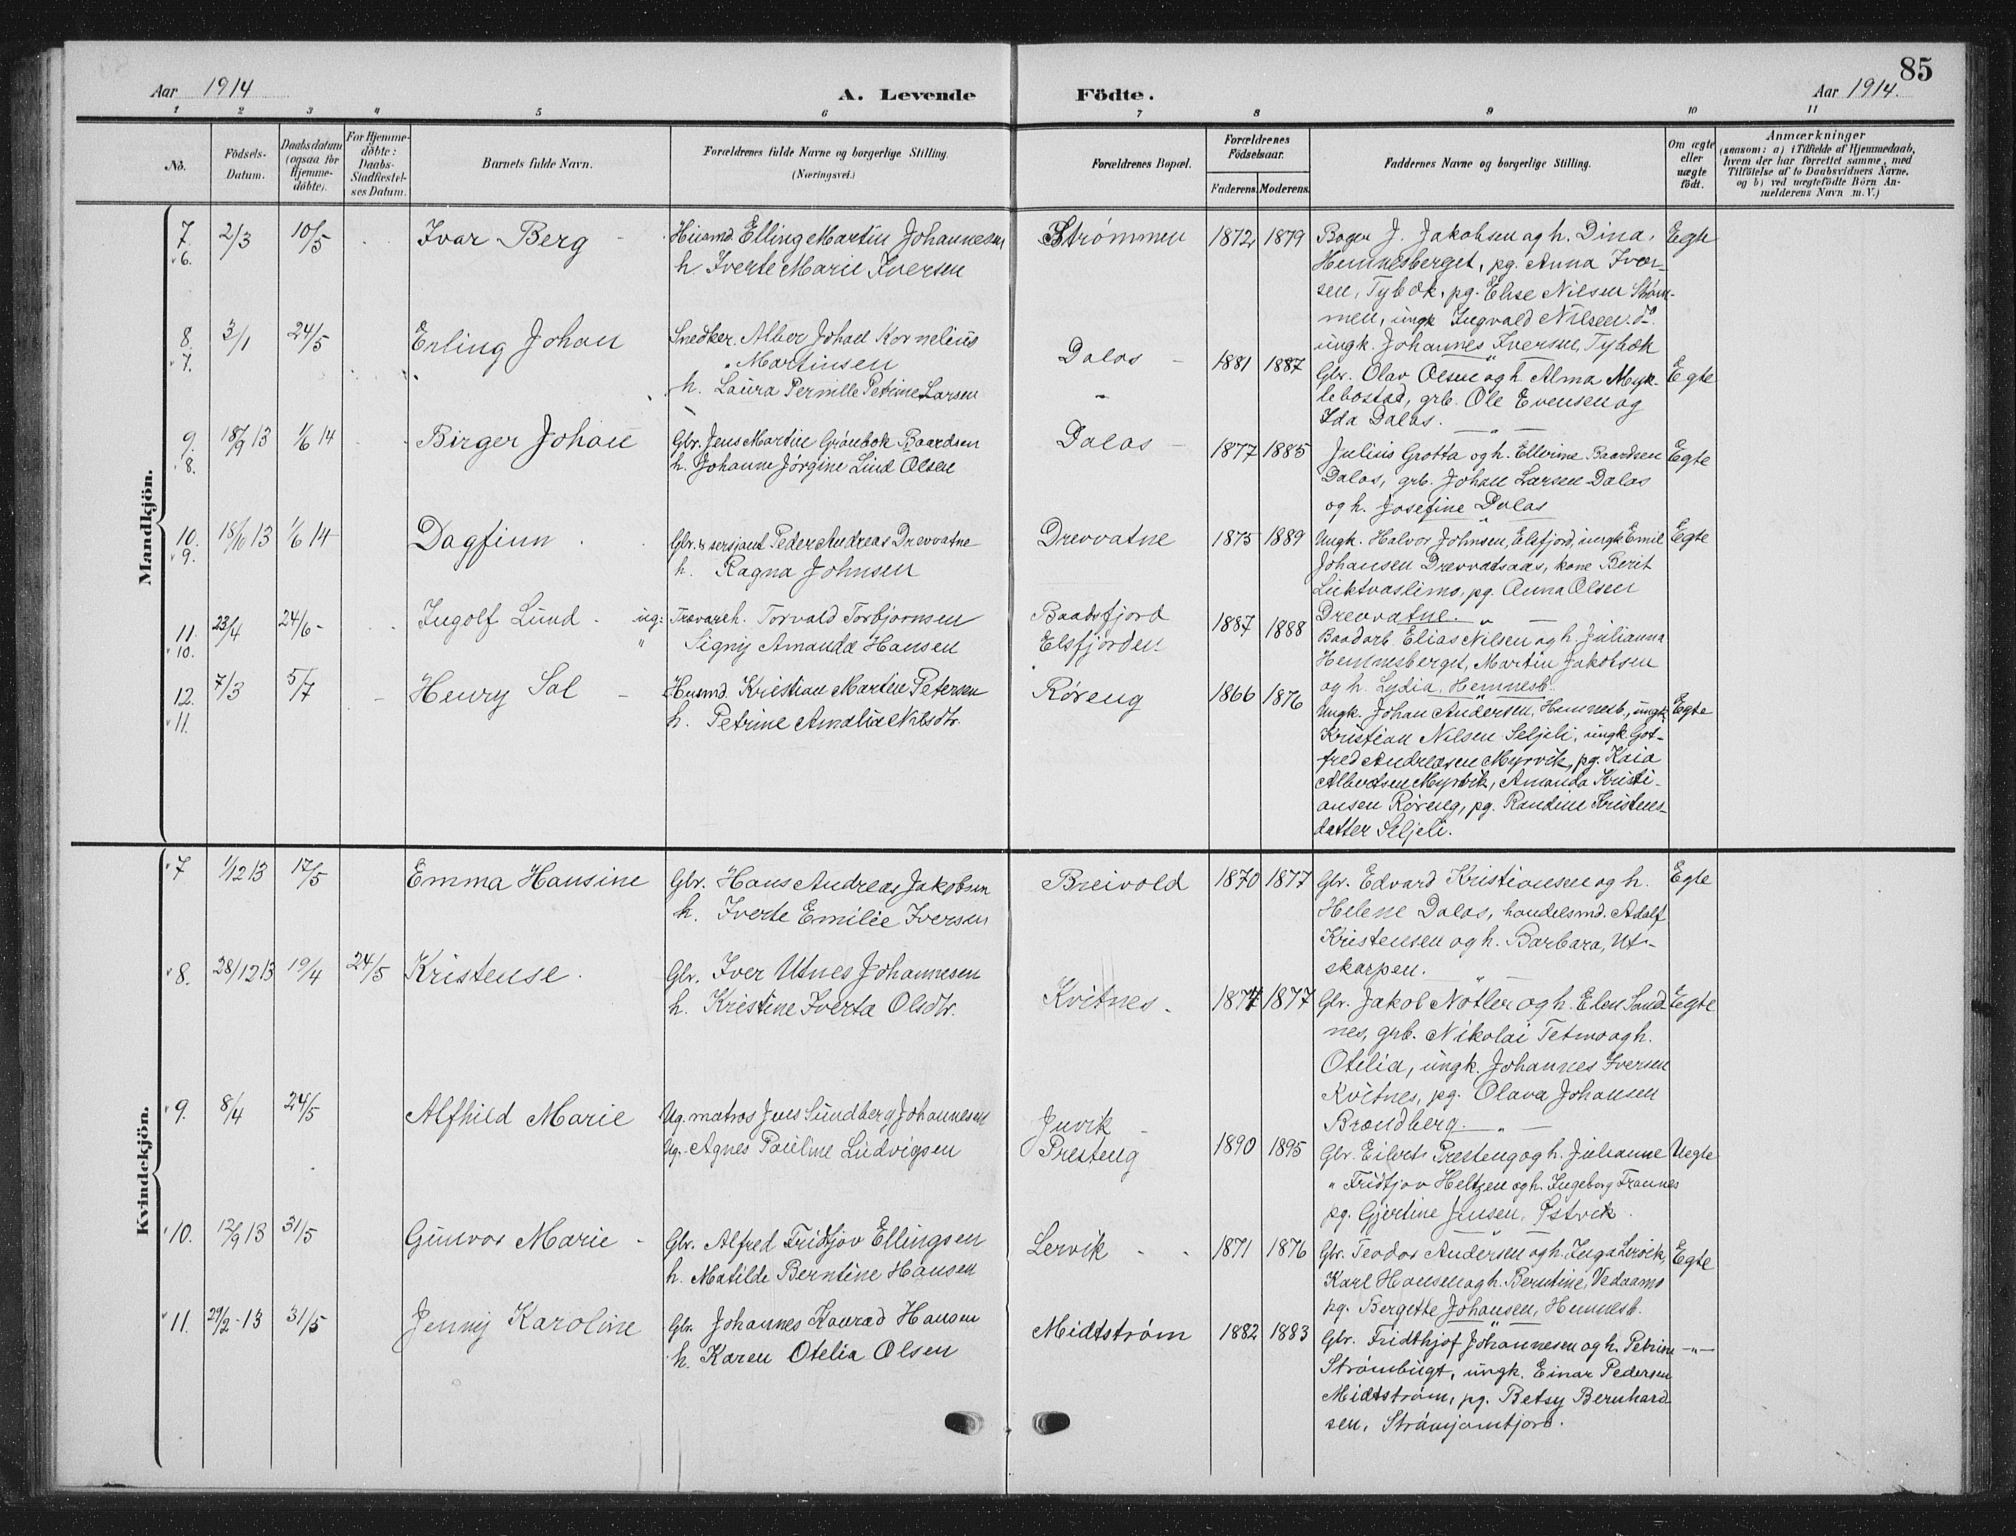 85
Aar 1914 A. Levende Födte. Aar 1914.
1 2 3 4 5 6 7 8 9 10 11
No. Födsels-Datum. Daabsdatum (ogsaa for Hjemmedöbte). For Hjemmedöbte: Daabs-Stadfæstelses Datum. Barnets fulde Navn. Forældrenes fulde Navne og borgerlige Stilling. (Næringsvei.) Forældrenes Bopæl. Forældrenes Födselsaar. Faderens. Moderens. Faddernes Navne og borgerlige Stilling. Om ægte eller uægte födt. Anmærkninger
(saasom: a) i Tilfælde af Hjemmedaab,
hvem der har forrettet samme, med
Tilföielse af to Daabsvidners Navne,
og b) ved uægtefödte Börn Anmelderens Navn m. V.)
Mandkjön.
7. 6. 2/3 10/5 Ivar Berg Husmd. Elling Martin Johannesen Strømmen 1872 1879 J. Jakobsen og h. Dina, Egte
h. Iverte Marie Iversen Hemnesberget, pg. Anna Iver-
sen, Tybæk, pg. Elise Nilsen Strøm-
men, ungk Ingvald Nilsen do
ungk. Johannes Iversen, Tybæk
8. 7. 3/1 24/5 Erling Johan Snedker. Johan Kornelius
Martinsen Dalos 1881 1887 Gbr. Olav Olsen og h Alma Myk- Egte
h. Laura Pernille Petrine Larsen " lebostad, grb. Ole Evensen og
Ida Dalos.
9. 8. 18/9 13 1/6 14 Birger Johan Gbr. Jens Martin Grønbok Baardsen Dalos 1877 1885 Julius Grotta og h. Ellerine Baardsen Egte
h. Johanne Jørgine Lind Olsen Dalos, grb. Johan Larsen Dalos
og h. Josefine Dalos
10. 9. 18/10 13 1/6 14 Dagfinn Gbr. & sersjant Peder Andreas Drevvatne Drevvatne 1875 1889 Ungk. Halvor Johnsen, Elsfjord, ungk Emil Egte
h. Ragna Johnsen Johansen Drevvatsaas, kone Berit
Luktvaslimo, pg. Anna Olsen
Drevvatne.
11. 10. 23/4 24/6 Ingolf Lund ug: Torvald Torbjørnsen Baadsfjord 1887 1888 Baadarb Elias Nilsen og h. Julianna
" Signy Amanda Hansen Elsfjorden Hemnesberget, Martin Jakobsen
og h. Lydia, Hemnesb.
12. 11. 7/3 5/7 Henry Sol Husmd. Kristian Martin Petersen Røreng 1866 1876 Ungk. Johan Andersen, Hemnesb., ungk Egte
h. Petrine Amalia Nilsdtr. Kristian Nilsen Seljeli, ungk. Got-
fred Andreasen Myrvik, pg. Kaia
Albertsen Myrvik, Amanda Kristi-
ansen Røreng, pg. Randine Kristens-
datter Seljeli.
Kvindekjön.
7 1/12 13 17/5 Emma Hansine Gbr. Hans Andreas Jakobsen Breivold 1870 1877 Gbr. Edvard Kristiansen og h. Egte
h. Iverte Emilie Iversen Helene Dalos, handelsmd. Adolf
Kristensen og h. Barbara, Ut-
skarpen.
8. 28/12 13 19/4 24/5 Kristense. Gbr. Iver Utnes Johannesen Kvitnes. 1874 1877 Gbr. Jakob Nøtler og h. Elen Sand- Egte
h. Kristine Iverta Olsdtr. nes, grb. Nikolai Tetmo og h.
Otelia, ungk. Johannes Iversen
Kvitnes, pg. Olava Johansen
Brandberg.
9. 8/4 24/5 Alfhild Marie Ug. matros Jens Sundberg Johannesen Juvik 1890 1895 Gbr. Eilert Presteng og h. Julianne Uegte
Ug. Agnes Pauline Ludvigsen Presteng " Fridtjov Heltzen og h. Ingeborg Frannes
pg. Gjertine Jensen, Østvik.
10. 12/9 13 31/5 Gunvor Marie Gbr. Alfred Fridtjov Ellingsen Lervik 1871 1876 Gbr. Teodor Andersen og h. Inga Lervik, Egte
h. Matilde Berntine Hansen Karl Hansen og h. Berntine, Vedaamo
pg. Bergette Johansen, Hemnesb.
11. 29/2-13 31/5 Jenny Karoline Gbr. Johannes Konrad Hansen Midtstrøm 1882 1883 Gbr. Fridthjof Johannesen og h. Petrine -"-
h. Karen Otelia Olsen Strømbugt, ungk. Einar Pedersen
Midtstrøm, pg. Betsy Bernhard-
sen,